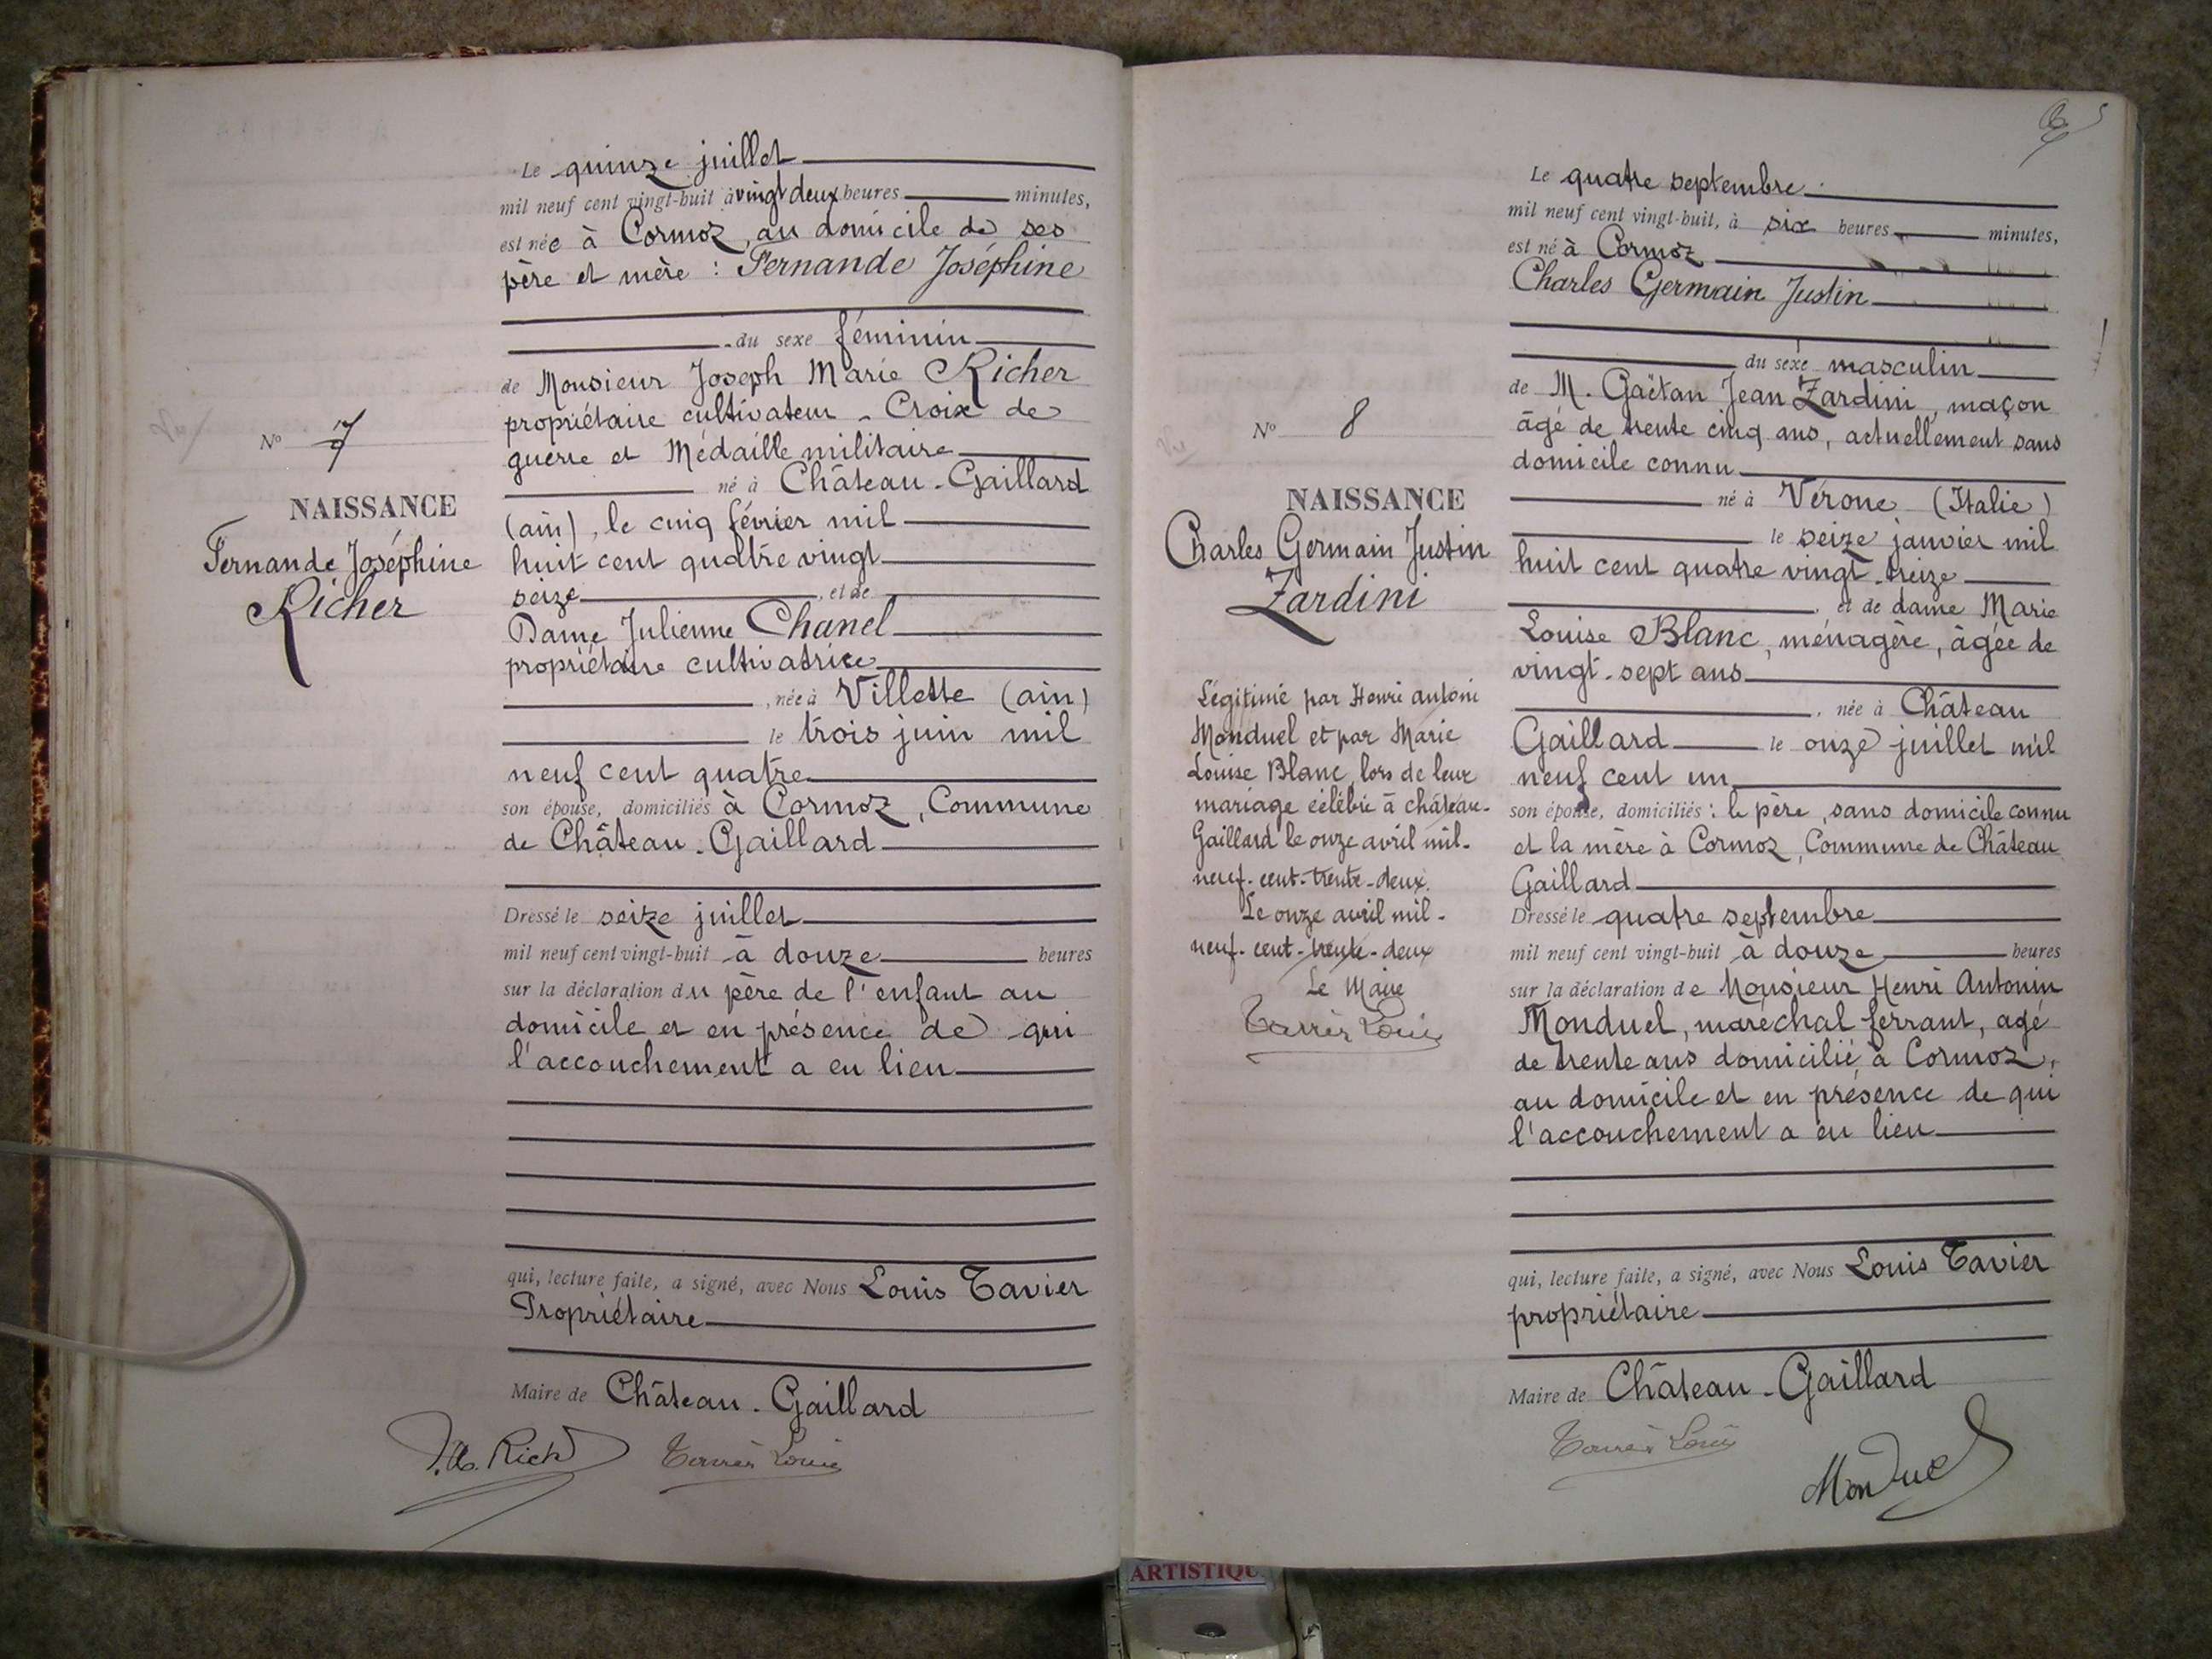 Le quinze juillet
mil neuf cent vingt-huit à vingt deux heures minutes,
est née à Cormoz, au domicile de ses
père et mère : Fernande Joséphine
du sexe féminin
de Monsieur Joseph Marie Richer
propriétaire cultivateur - Croix de
guerre et Médaille militaire
né à Château-Gaillard
(ain), le cinq février mil
huit cent quatre vingt
seize, et de
Dame Julienne Chanel
propriétaire cultivatrice
, née à Villette (ain)
le trois juin mil
neuf cent quatre
son épouse, domiciliés à Cormoz, Commune
de Château-Gaillard
Dressé le seize juillet
mil neuf cent vingt-huit à douze heures
sur la déclaration du père de l'enfant au
domicile et en présence de qui
l'accouchement a eu lieu
qui, lecture faite, a signé, avec Nous Louis Tavier
Propriétaire
Maire de Château-Gaillard
Nº 7
NAISSANCE
Fernande Joséphine
Richer
Le quatre septembre
mil neuf cent vingt-huit, à six heures minutes,
est né à Cormoz
Charles Germain Justin
du sexe masculin
de M. Gaëtan Jean Zardini, maçon
âgé de trente cinq ans, actuellement sans
domicile connu
né à Vérone (Italie)
le seize janvier mil
huit cent quatre vingt-treize
, et de dame Marie
Louise Blanc, ménagère, âgée de
vingt-sept ans
, née à Château
Gaillard le onze juillet mil
neuf cent un
son épouse, domiciliés : le père sans domicile connu
et la mère à Cormoz, Commune de Château
Gaillard
Dressé le quatre septembre
mil neuf cent vingt-huit à douze heures
sur la déclaration de Monsieur Henri Antonin
Monduel, maréchal ferrant, agé
de trente ans domicilié à Cormoz,
au domicile et en présence de qui
l'accouchement a eu lieu
qui, lecture faite, a signé, avec Nous Louis Tavier
propriétaire
Maire de Château-Gaillard
Monduel
Nº 8
NAISSANCE
Charles Germain Justin
Zardini
Légitimé par Henri antoni
Monduel et par Marie
Louise Blanc, lors de leur
mariage célébré à château-
Gaillard le onze avril mil-
neuf-cent-trente-deux.
Le onze avril mil-
neuf-cent-trente-deux
Le Maire
ARTISTIQU